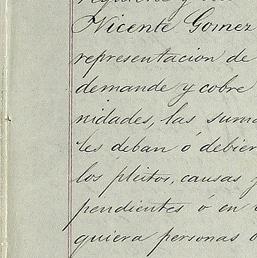 Vicente Gomez
representacion de
demande y cobre
nidades, las suma
les deban ó debier
los pleitos, causas y
pendientes ó en
quiera personas ó